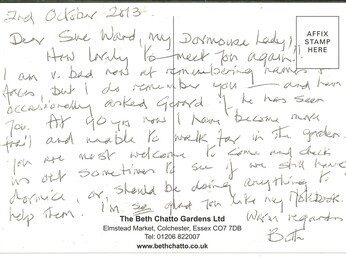 2nd October 2013.
Dear Sue Ward, my Dormouse Lady!,
How lovely to meet you again.
I am v. bad now at remembering names &
faces but I do remember you — and have
occasionally asked Gerard if he has seen
you. At 90 yrs now I have become more
frail and unable to walk far in the garden.
You are most welcome to come and check
us out sometimes to see if we still have
dormice, or, should be doing anything to
help them. I'm so glad you like my
Warm regards
Beth
AFFIX
STAMP
HERE
The Beth Chatto Gardens Ltd
Elmstead Market, Colchester, Essex CO7 7DB
Tel: 01206 822007
www.bethchatto.co.uk